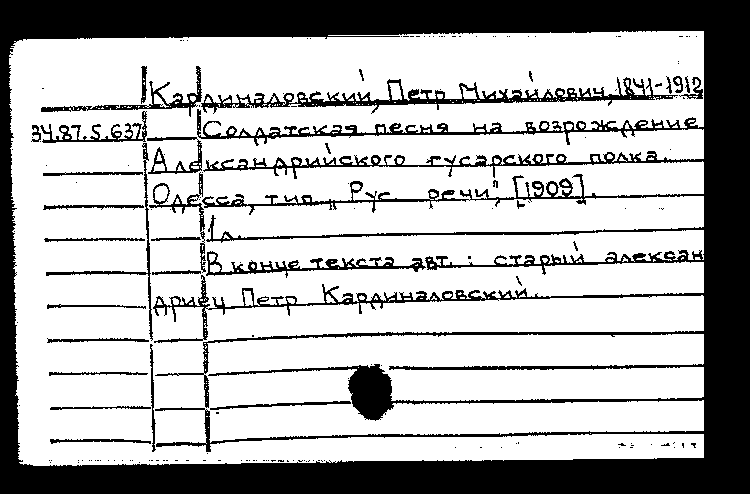 Кардиналовский, Петр Михайлович, 1841-1912
34.87.5.637 Солдатская песня на возрождение
Александрийского гусарского полка.
Одесса, тип. „Рус. речи", [1909].
1 л.
В конце текста авт.: старый александ
дриец Петр Кардиналовский.